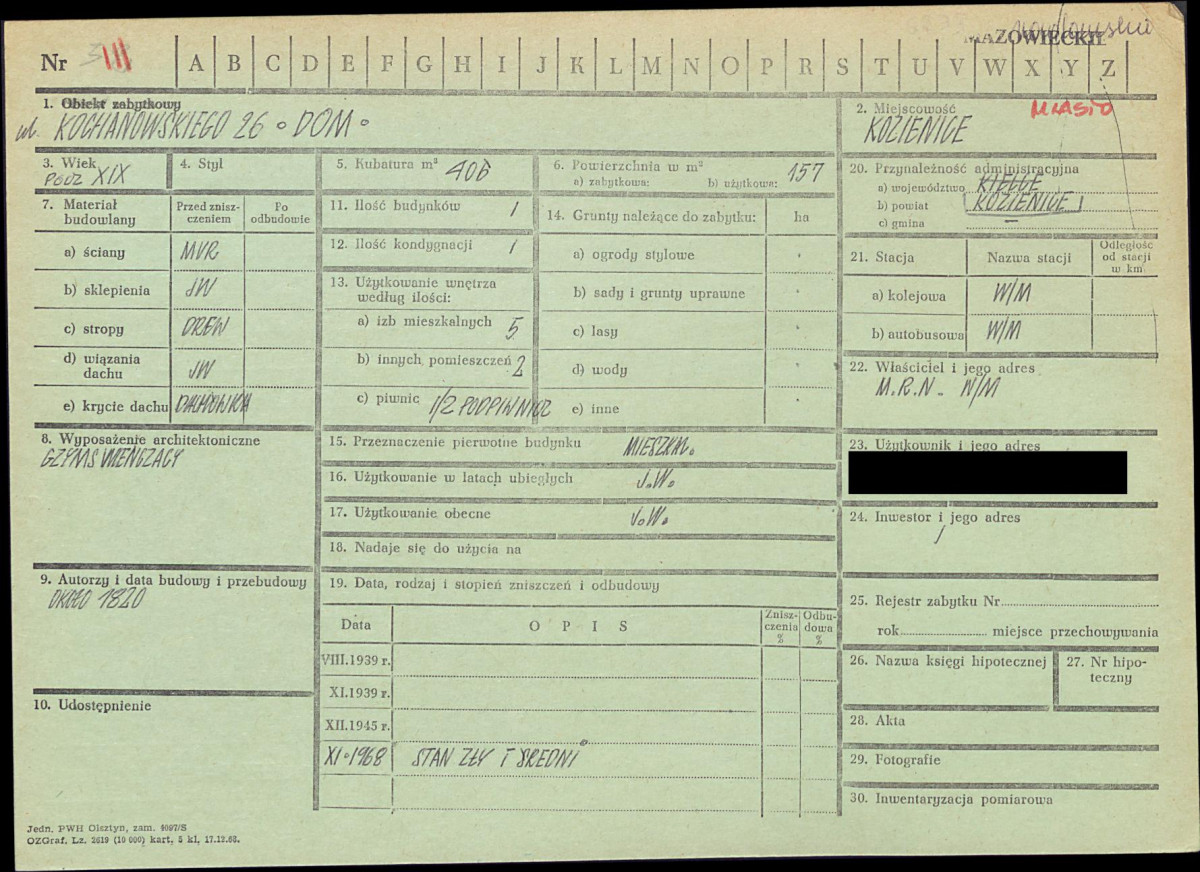 MAZOWIECKIE
Nr III A B C D E F G H I J K L M N O P R S T U V W X Y Z
1. Obiekt zabytkowy
ul. KOCHANOWSKIEGO 26 DOM
2. Miejscowość MIASTO
KOZIENICE
3. Wiek
POCZ XIX
4. Styl
5. Kubatura m³ 406
6. Powierzchnia w m²
a) zabytkowa: b) użytkowa: 157
20. Przynależność administracyjna
a) województwo KIELCE
b) powiat KOZIENICE
c) gmina –
7. Materiał budowlany
Przed zniszczeniem
Po odbudowie
a) ściany MUR
b) sklepienia JW
c) stropy DREW
d) wiązania dachu JW
e) krycie dachu DACHÓWKA
11. Ilość budynków 1
12. Ilość kondygnacji 1
13. Użytkowanie wnętrza
według ilości:
a) izb mieszkalnych 5
b) innych pomieszczeń 2
c) piwnic 1/2 PODPIWNICZ
14. Grunty należące do zabytku: ha
a) ogrody stylowe
b) sady i grunty uprawne
c) lasy
d) wody
e) inne
21. Stacja Nazwa stacji Odległość od stacji w km.
a) kolejowa W/M
b) autobusowa W/M
22. Właściciel i jego adres
M.R.N.. W/M
8. Wyposażenie architektoniczne
GZYMS WIEŃCZĄCY
15. Przeznaczenie pierwotne budynku MIESZK.
16. Użytkowanie w latach ubiegłych J.W.
17. Użytkowanie obecne J.W.
18. Nadaje się do użycia na
23. Użytkownik i jego adres
24. Inwestor i jego adres
/
9. Autorzy i data budowy i przebudowy
OKOŁO 1820
19. Data, rodzaj i stopień zniszczeń i odbudowy
Data OPIS Zniszczenia % Odbudowa %
VIII.1939 r.
XI.1939 r.
XII.1945 r.
XI.1968 STAN ZŁY I ŚREDNI
25. Rejestr zabytku Nr
rok miejsce przechowywania
26. Nazwa księgi hipotecznej
27. Nr hipoteczny
10. Udostępnienie
28. Akta
29. Fotografie
30. Inwentaryzacja pomiarowa
Jedn. PWH Olsztyn, zam. 4097/S
OZGraf. Lz. 2619 (10 000) kart. 5 kl, 17.12.68.